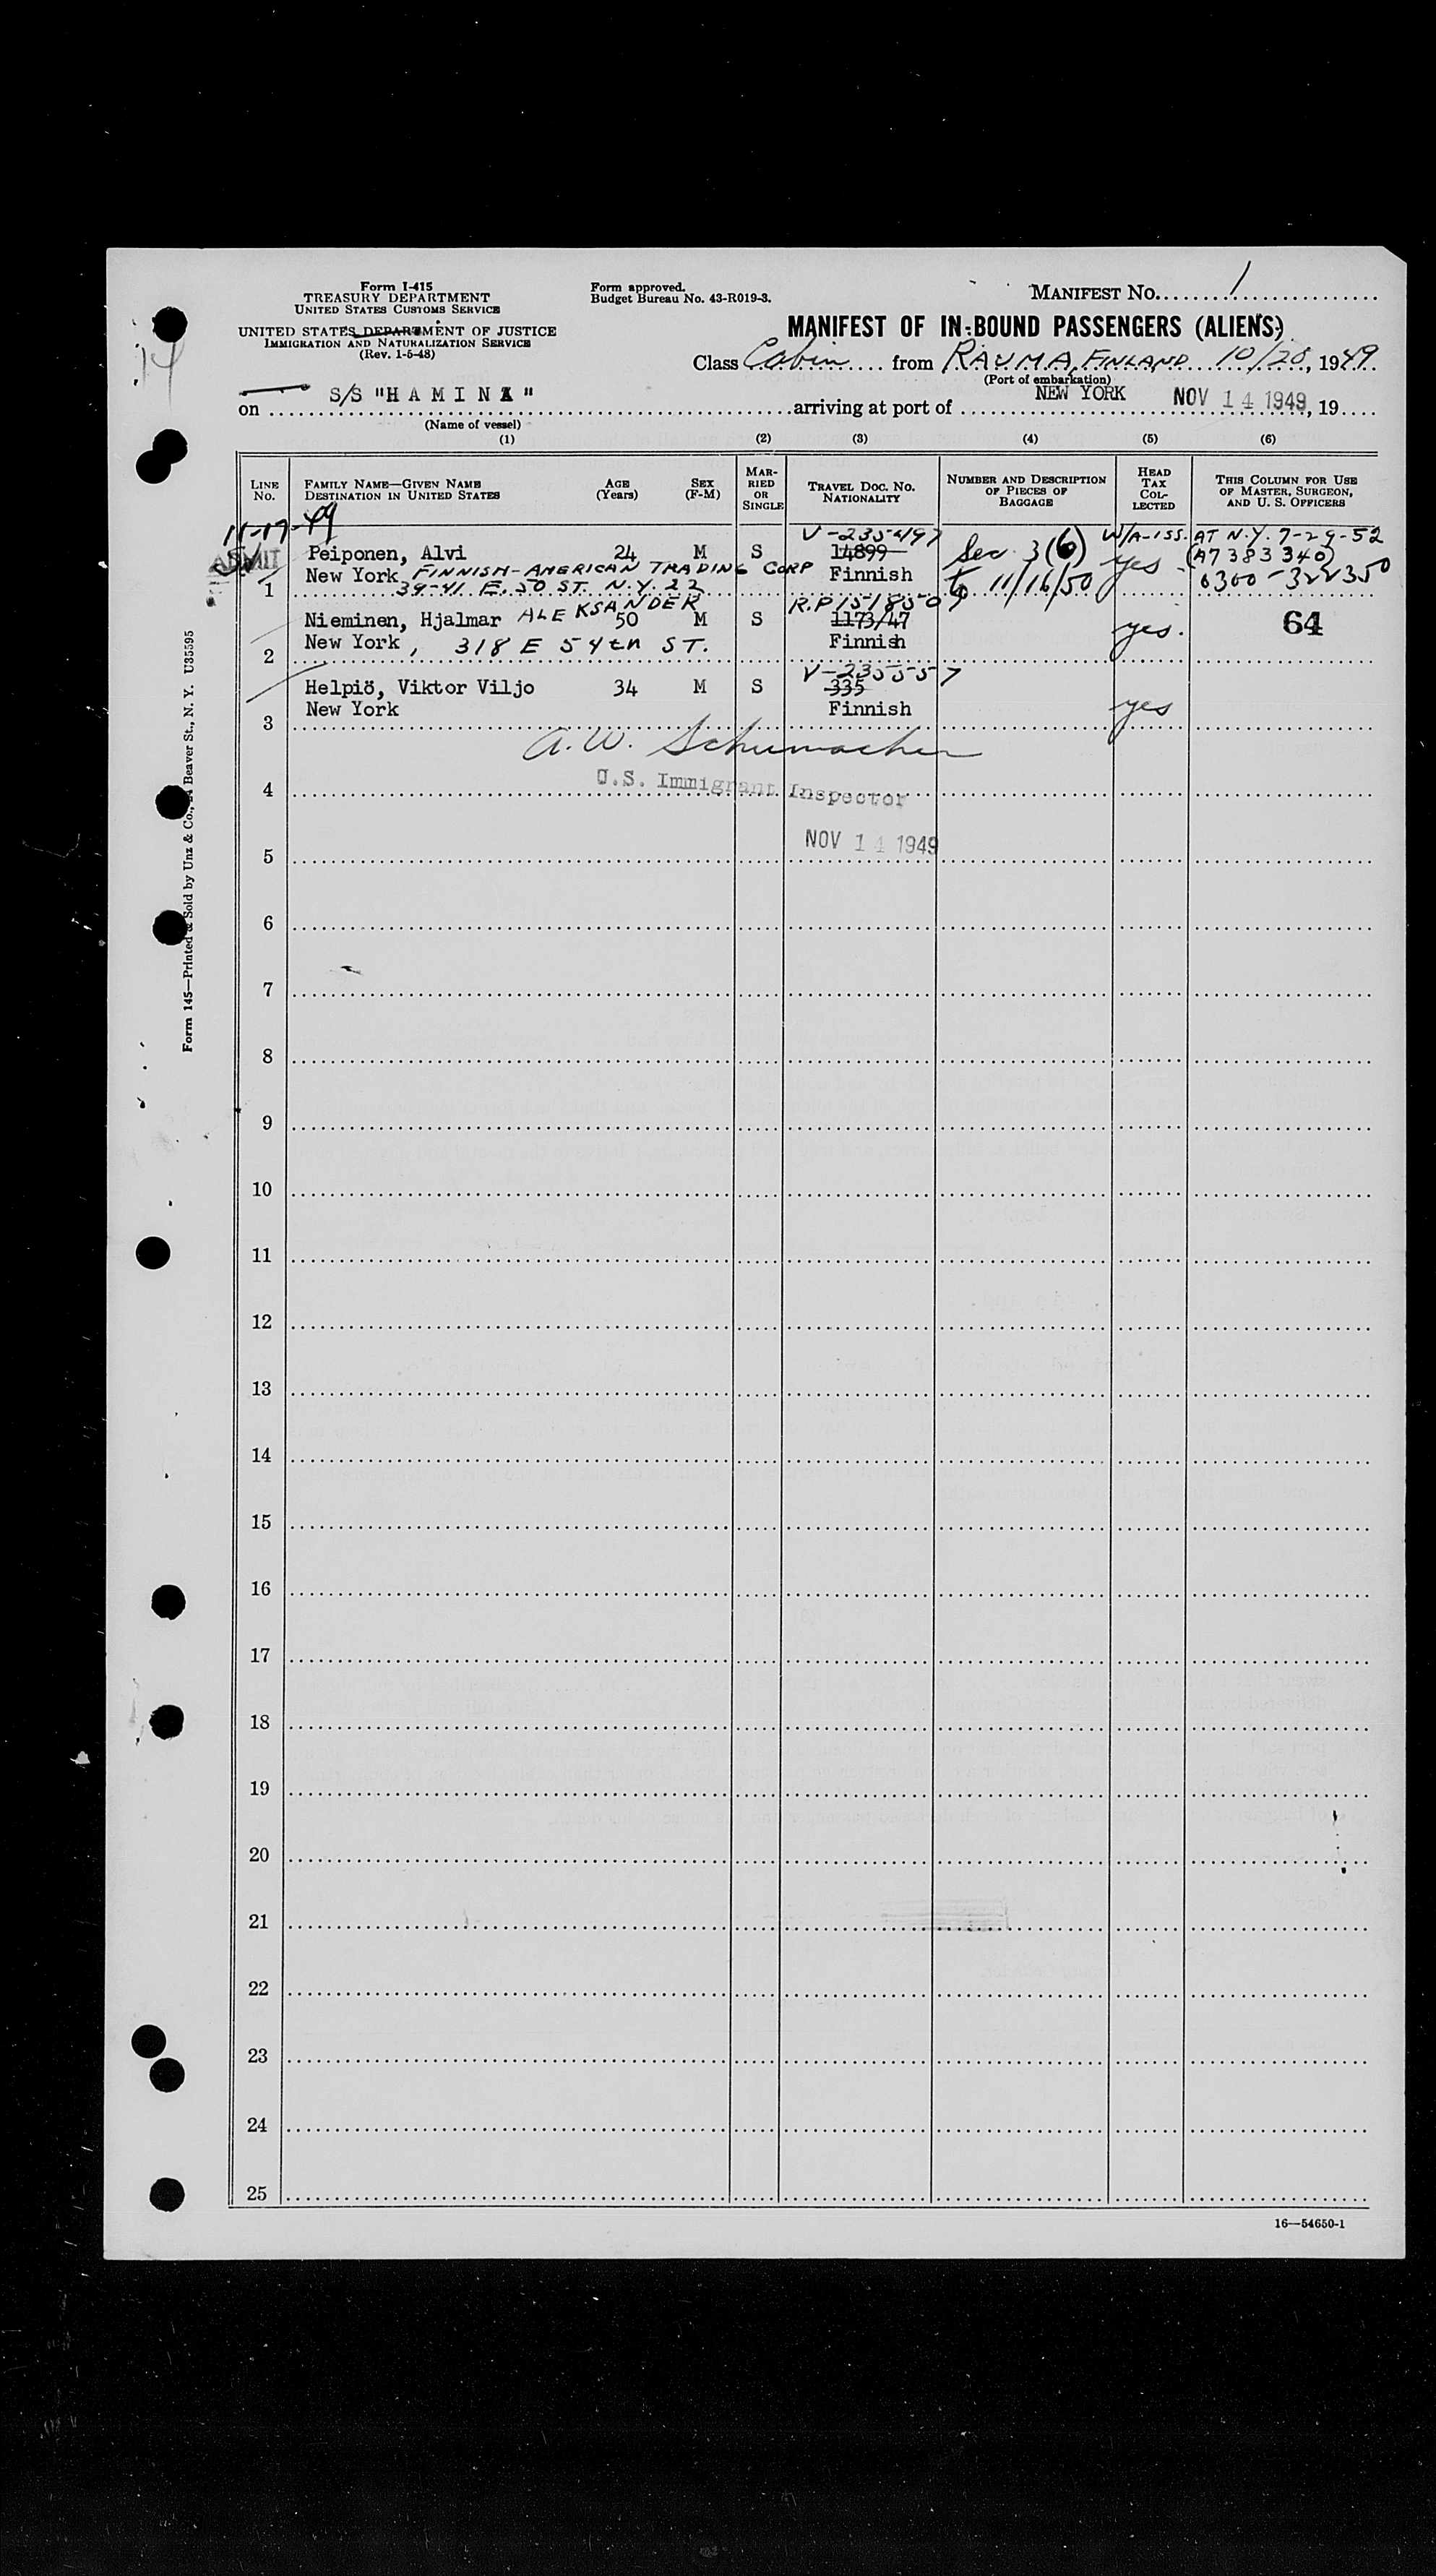 Form I-415
TREASURY DEPARTMENT
UNITED STATES CUSTOMS SERVICE
UNITED STATES DEPARTMENT OF JUSTICE
IMMIGRATION AND NATURALIZATION SERVICE
(Rev. 1-5-48)
Form approved.
Budget Bureau No. 43-R019-3.
MANIFEST NO. 1
MANIFEST OF IN-BOUND PASSENGERS (ALIENS)
Class Cabin from RAUMA, FINLAND 10/28, 1949
(Port of embarkation)
on S/S "HAMINA" arriving at port of NEW YORK NOV 14 1949, 19
(Name of vessel)
(1) (2) (3) (4) (5) (6)
LINE NO.
FAMILY NAME—GIVEN NAME
DESTINATION IN UNITED STATES
AGE (Years)
SEX (F-M)
MARRIED OR SINGLE
TRAVEL DOC. NO.
NATIONALITY
NUMBER AND DESCRIPTION OF PIECES OF BAGGAGE
HEAD TAX COLLECTED
THIS COLUMN FOR USE OF MASTER, SURGEON, AND U. S. OFFICERS
11-17-49
V-235497 W/A-ISS. AT N.Y. 7-29-52
ADMIT Peiponen, Alvi 24 M S 14899 Sec 3(6) yes (A7383340)
1 New York FINNISH-AMERICAN TRADING CORP Finnish to 11/16/50 0300-322350
39-41 E. 50 ST. N.Y. 22
Nieminen, Hjalmar ALEKSANDER 50 M S R.P 1518509 1173/47 yes. 64
2 New York, 318 E 54th ST. Finnish
V-235557
Helpiö, Viktor Viljo 34 M S 335
3 New York Finnish yes
A.W. Schumacher
4 U.S. Immigrant Inspector
5 NOV 14 1949
6
7
8
9
10
11
12
13
14
15
16
17
18
19
20
21
22
23
24
25
16—54650-1
Form 145—Printed & Sold by Unz & Co., Beaver St., N. Y. U35595
14